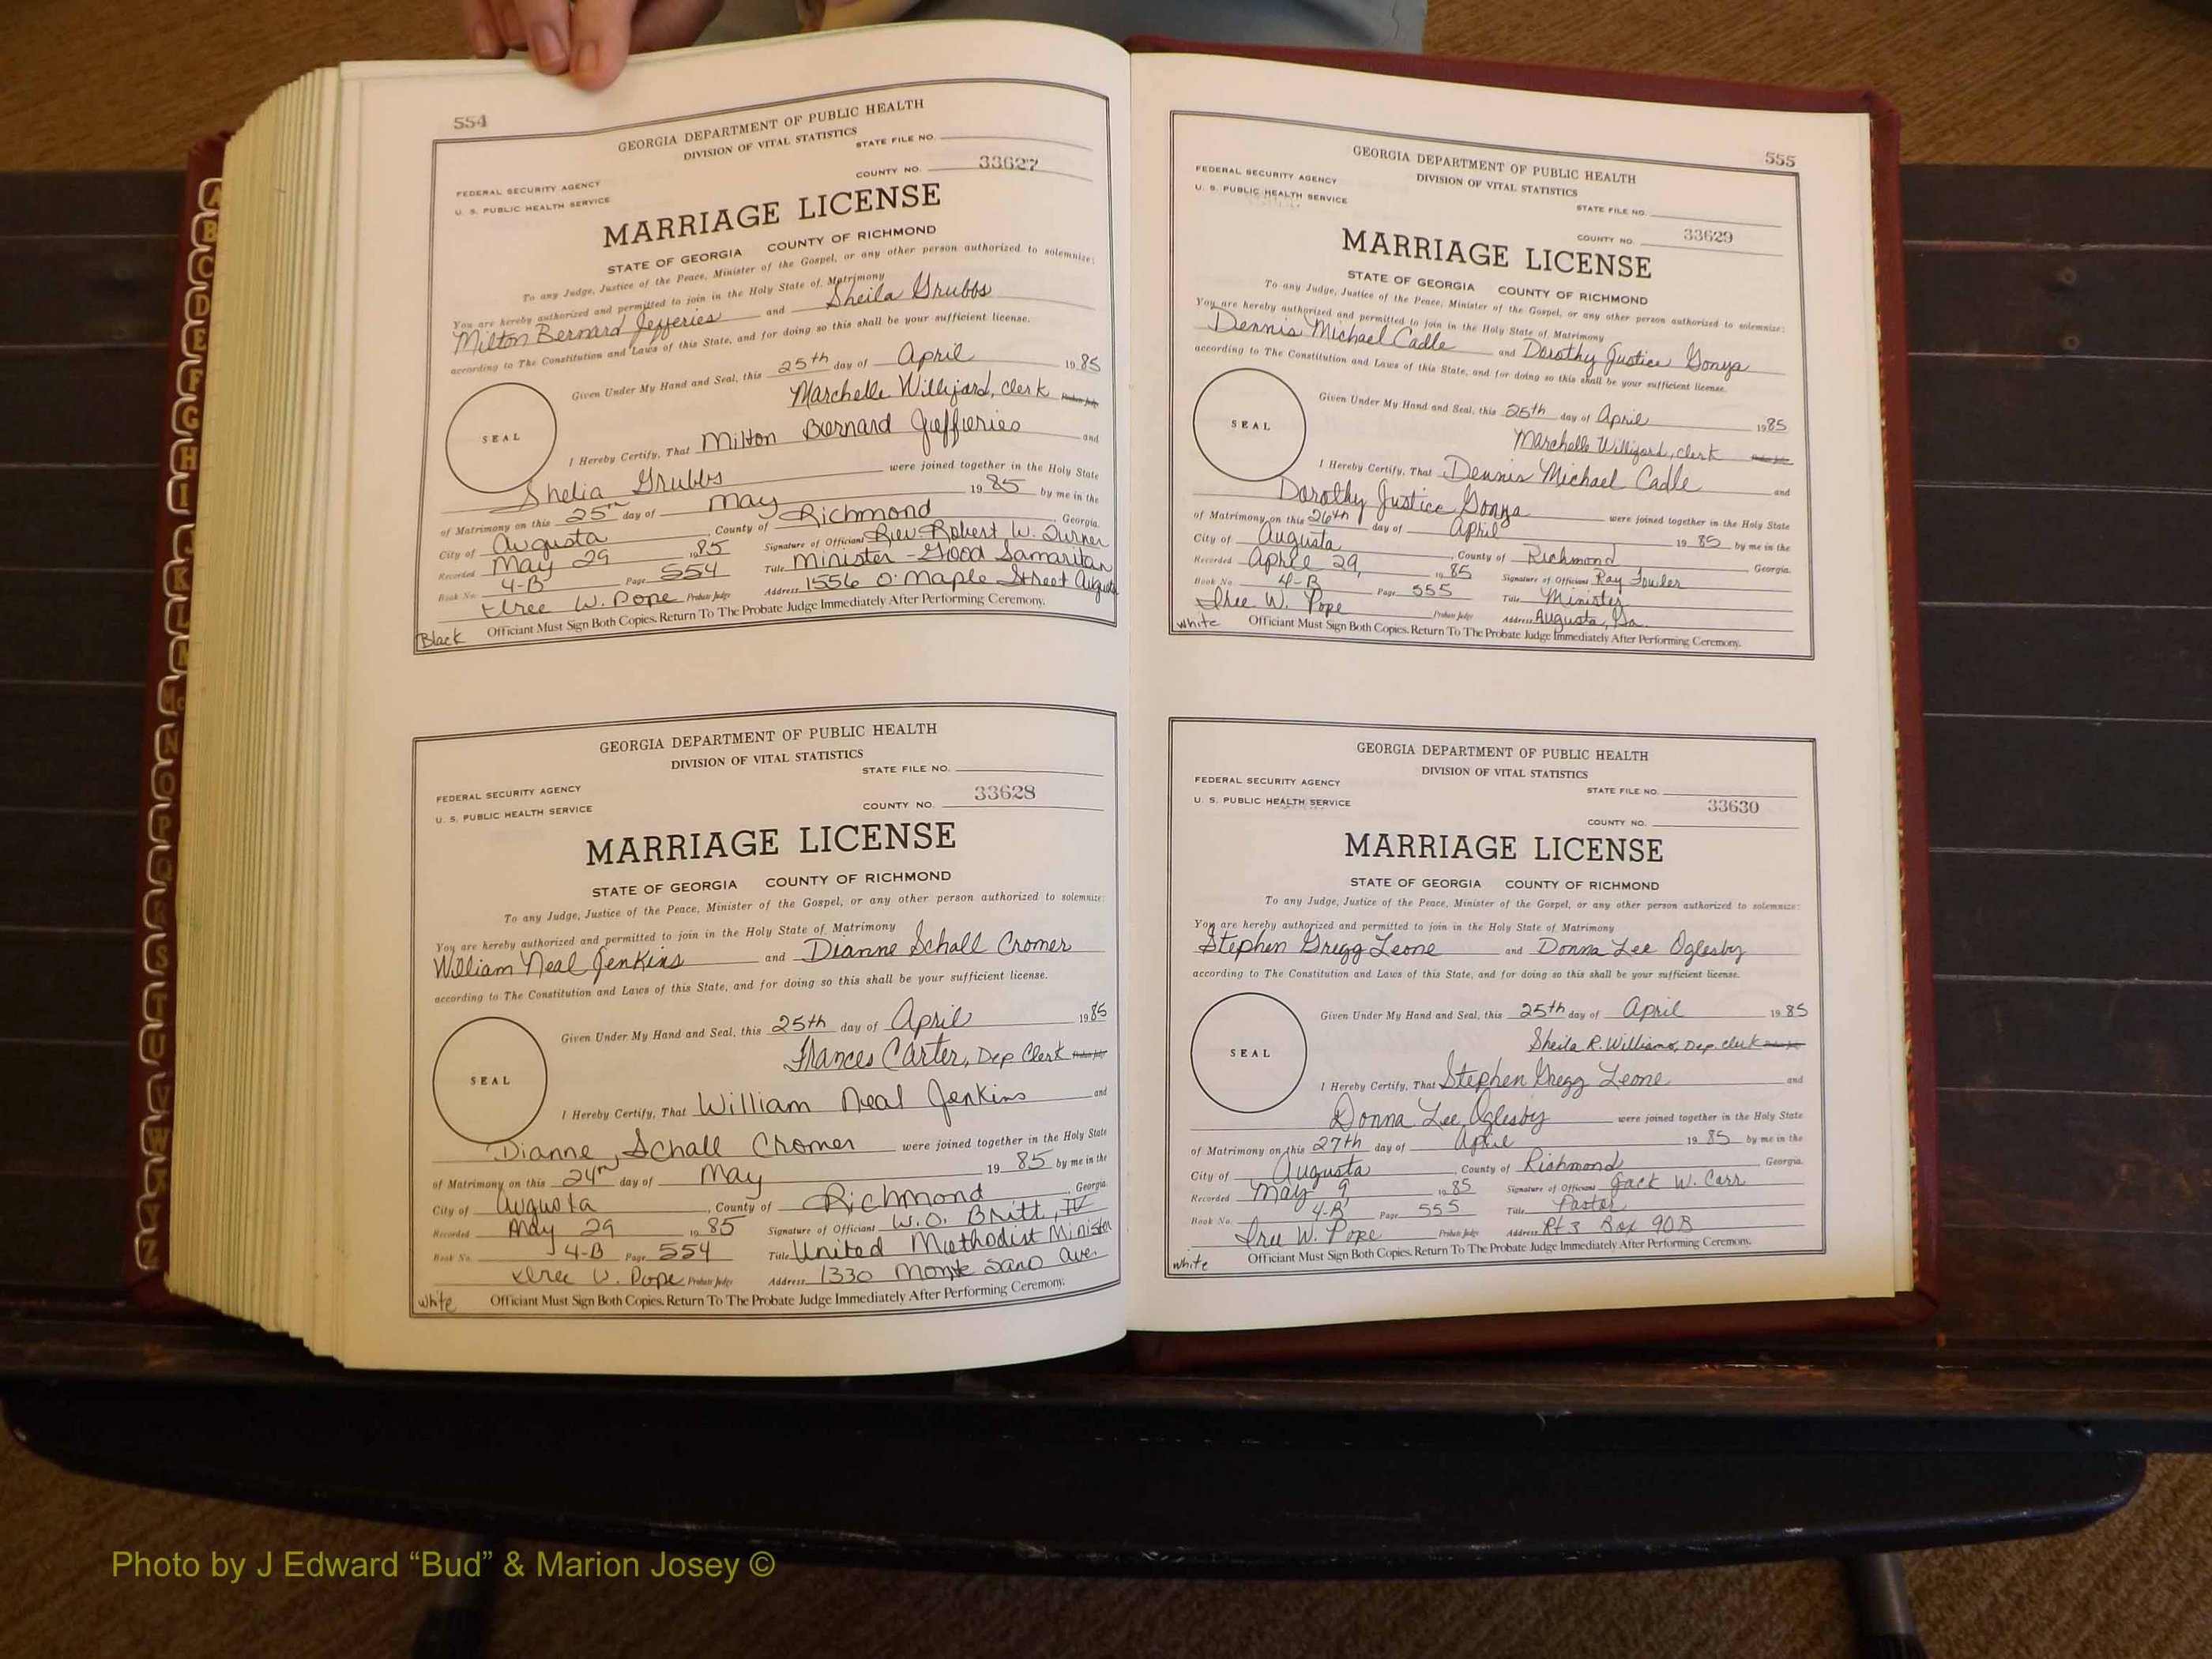 554
GEORGIA DEPARTMENT OF PUBLIC HEALTH
DIVISION OF VITAL STATISTICS
STATE FILE NO.
COUNTY NO. 33627
FEDERAL SECURITY AGENCY
U. S. PUBLIC HEALTH SERVICE
MARRIAGE LICENSE
STATE OF GEORGIA COUNTY OF RICHMOND
To any Judge, Justice of the Peace, Minister of the Gospel, or any other person authorized to solemnize:
You are hereby authorized and permitted to join in the Holy State of Matrimony
Milton Bernard Jefferies and Sheila Grubbs
according to The Constitution and Laws of this State, and for doing so this shall be your sufficient license.
Given Under My Hand and Seal, this 25th day of April 1985
Marchelle Williford, Clerk Probate Judge
SEAL
I Hereby Certify, That Milton Bernard Jefferies and
Shelia Grubbs were joined together in the Holy State
of Matrimony on this 25th day of May 1985 by me in the
City of Augusta, County of Richmond, Georgia.
Recorded May 29 1985 Signature of Officiant Rev Robert W. Turner
Book No. 4-B Page 554 Title Minister - Good Samaritan
Iree W. Pope Probate Judge Address 1556 O. Maple Street Augusta
Black Officiant Must Sign Both Copies. Return To The Probate Judge Immediately After Performing Ceremony.
GEORGIA DEPARTMENT OF PUBLIC HEALTH
DIVISION OF VITAL STATISTICS
STATE FILE NO.
FEDERAL SECURITY AGENCY
U. S. PUBLIC HEALTH SERVICE
COUNTY NO. 33628
MARRIAGE LICENSE
STATE OF GEORGIA COUNTY OF RICHMOND
To any Judge, Justice of the Peace, Minister of the Gospel, or any other person authorized to solemnize:
You are hereby authorized and permitted to join in the Holy State of Matrimony
William Neal Jenkins and Dianne Schall Cromer
according to The Constitution and Laws of this State, and for doing so this shall be your sufficient license.
Given Under My Hand and Seal, this 25th day of April 1985
Frances Carter, Dep Clerk Probate Judge
SEAL
I Hereby Certify, That William Neal Jenkins and
Dianne Schall Cromer were joined together in the Holy State
of Matrimony on this 24th day of May 1985 by me in the
City of Augusta, County of Richmond, Georgia
Recorded May 29 1985 Signature of Officiant W. O. Britt, IV
Book No. 4-B Page 554 Title United Methodist Minister
Iree W. Pope Probate Judge Address 1330 Monte Sano Ave.
white Officiant Must Sign Both Copies. Return To The Probate Judge Immediately After Performing Ceremony.
555
GEORGIA DEPARTMENT OF PUBLIC HEALTH
DIVISION OF VITAL STATISTICS
FEDERAL SECURITY AGENCY
U. S. PUBLIC HEALTH SERVICE
STATE FILE NO.
COUNTY NO. 33629
MARRIAGE LICENSE
STATE OF GEORGIA COUNTY OF RICHMOND
To any Judge, Justice of the Peace, Minister of the Gospel, or any other person authorized to solemnize:
You are hereby authorized and permitted to join in the Holy State of Matrimony
Dennis Michael Cadle and Dorothy Justice Gonya
according to The Constitution and Laws of this State, and for doing so this shall be your sufficient license.
Given Under My Hand and Seal, this 25th day of April 1985
Marchelle Williford, clerk Probate Judge
SEAL
I Hereby Certify, That Dennis Michael Cadle and
Dorothy Justice Gonya were joined together in the Holy State
of Matrimony on this 26th day of April 1985 by me in the
City of Augusta, County of Richmond Georgia.
Recorded April 29, 1985 Signature of Officiant Ray Fowler
Book No. 4-B Page 555 Title Minister
Iree W. Pope Probate Judge Address Augusta, Ga.
white Officiant Must Sign Both Copies. Return To The Probate Judge Immediately After Performing Ceremony.
GEORGIA DEPARTMENT OF PUBLIC HEALTH
DIVISION OF VITAL STATISTICS
FEDERAL SECURITY AGENCY
STATE FILE NO.
U. S. PUBLIC HEALTH SERVICE
33630
COUNTY NO.
MARRIAGE LICENSE
STATE OF GEORGIA COUNTY OF RICHMOND
To any Judge, Justice of the Peace, Minister of the Gospel, or any other person authorized to solemnize:
You are hereby authorized and permitted to join in the Holy State of Matrimony
Stephen Gregg Leone and Donna Lee Oglesby
according to The Constitution and Laws of this State, and for doing so this shall be your sufficient license.
Given Under My Hand and Seal, this 25th day of April 1985
Sheila R. Williams, Dep. clerk Probate Judge
SEAL
I Hereby Certify, That Stephen Gregg Leone and
Donna Lee Oglesby were joined together in the Holy State
of Matrimony on this 27th day of April 1985 by me in the
City of Augusta, County of Richmond Georgia.
Recorded May 9, 1985 Signature of Officiant Jack W. Carr
Book No. 4-B Page 555 Title Pastor
Iree W. Pope Probate Judge Address Rt 3 Box 90B
white Officiant Must Sign Both Copies. Return To The Probate Judge Immediately After Performing Ceremony.
Photo by J Edward “Bud” & Marion Josey ©